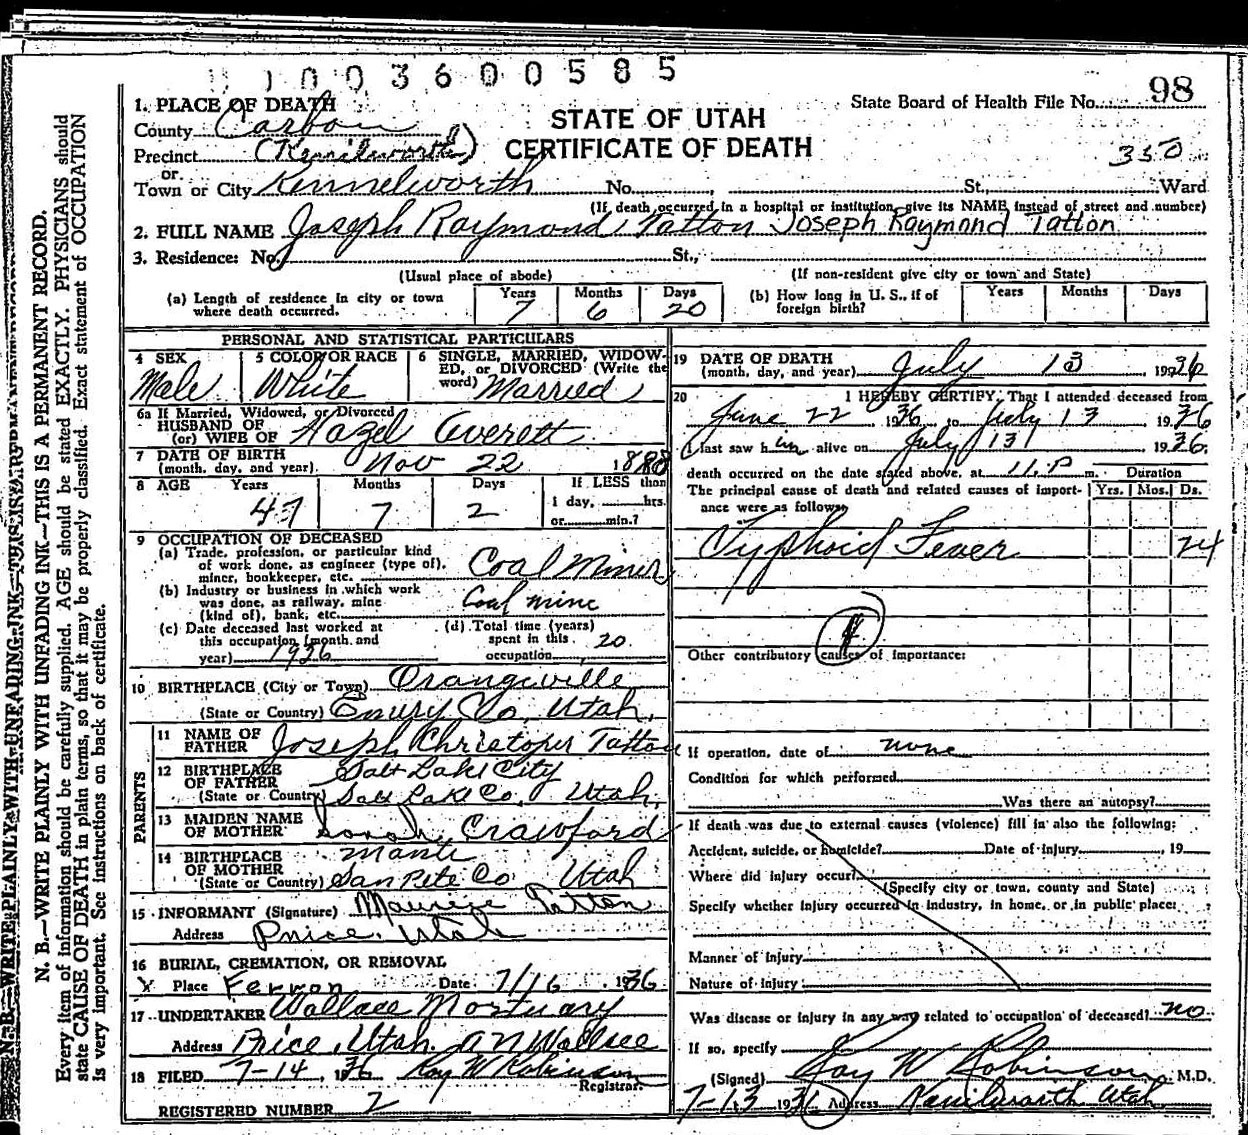 1003600585
98
1. PLACE OF DEATH
State Board of Health File No. 98
County Carbon
STATE OF UTAH
Precinct (Kenilworth)
CERTIFICATE OF DEATH
350
or
Town or City Kennelworth No. , St., Ward
(If death occurred in a hospital or institution, give its NAME instead of street and number)
2. FULL NAME Joseph Raymond Tatton Joseph Raymond Tatton
3. Residence: No. St.,
(Usual place of abode) (If non-resident give city or town and State)
(a) Length of residence in city or town where death occurred. Years 7 Months 6 Days 20
(b) How long in U. S., if of foreign birth? Years Months Days
PERSONAL AND STATISTICAL PARTICULARS
4 SEX Male
5 COLOR OR RACE White
6 SINGLE, MARRIED, WIDOWED, or DIVORCED (Write the word) Married
6a If Married, Widowed, or Divorced
HUSBAND OF
(or) WIFE OF Hazel Averett
7 DATE OF BIRTH
(month, day, and year) Nov 22 1888
8 AGE Years 47 Months 7 Days 2
If LESS than
1 day, hrs.
or min.?
9 OCCUPATION OF DECEASED
(a) Trade, profession, or particular kind
of work done, as engineer (type of),
miner, bookkeeper, etc. Coal Miner
(b) Industry or business in which work
was done, as railway, mine
(kind of), bank, etc. Coal mine
(c) Date deceased last worked at
this occupation (month and
year) 1936
(d) Total time (years)
spent in this
occupation 20
10 BIRTHPLACE (City or Town) Orangeville
(State or Country) Emery Co, Utah.
PARENTS
11 NAME OF
FATHER Joseph Christoper Tatton
12 BIRTHPLACE
OF FATHER Salt Lake City
(State or Country) Salt Lake Co, Utah.
13 MAIDEN NAME
OF MOTHER Sarah Crawford
14 BIRTHPLACE
OF MOTHER Manti
(State or Country) San Pete Co Utah
15 INFORMANT (Signature) Tatton
Address Price, Utah
16 BURIAL, CREMATION, OR REMOVAL
Place Ferron Date 7/16 1936
17 UNDERTAKER Wallace Mortuary
Address Price, Utah. A N Wallace
18 FILED 7-14, 1936 Ray W Robinson
Registrar.
REGISTERED NUMBER 2
19 DATE OF DEATH
(month, day, and year) July 13 1936
20 I HEREBY CERTIFY, That I attended deceased from
June 22 1936 to July 13 1936
I last saw him alive on July 13 1936.
death occurred on the date stated above, at 11 P m. Duration
The principal cause of death and related causes of importance were as follows: Yrs. Mos. Ds.
Typhoid Fever 24
Other contributory causes of importance:
If operation, date of none
Condition for which performed
Was there an autopsy?
If death was due to external causes (violence) fill in also the following:
Accident, suicide, or homicide? Date of injury , 19
Where did injury occur?
(Specify city or town, county and State)
Specify whether injury occurred in industry, in home, or in public place:
Manner of injury
Nature of injury
Was disease or injury in any way related to occupation of deceased? no
If so, specify
(Signed) Ray W Robinson M.D.
7-13 1936 Address Kenilworth Utah
N. B.—WRITE PLAINLY WITH UNFADING INK—THIS IS A PERMANENT RECORD.
Every item of information should be carefully supplied. AGE should be stated EXACTLY. PHYSICIANS should
state CAUSE OF DEATH in plain terms, so that it may be properly classified. Exact statement of OCCUPATION
is very important. See instructions on back of certificate.